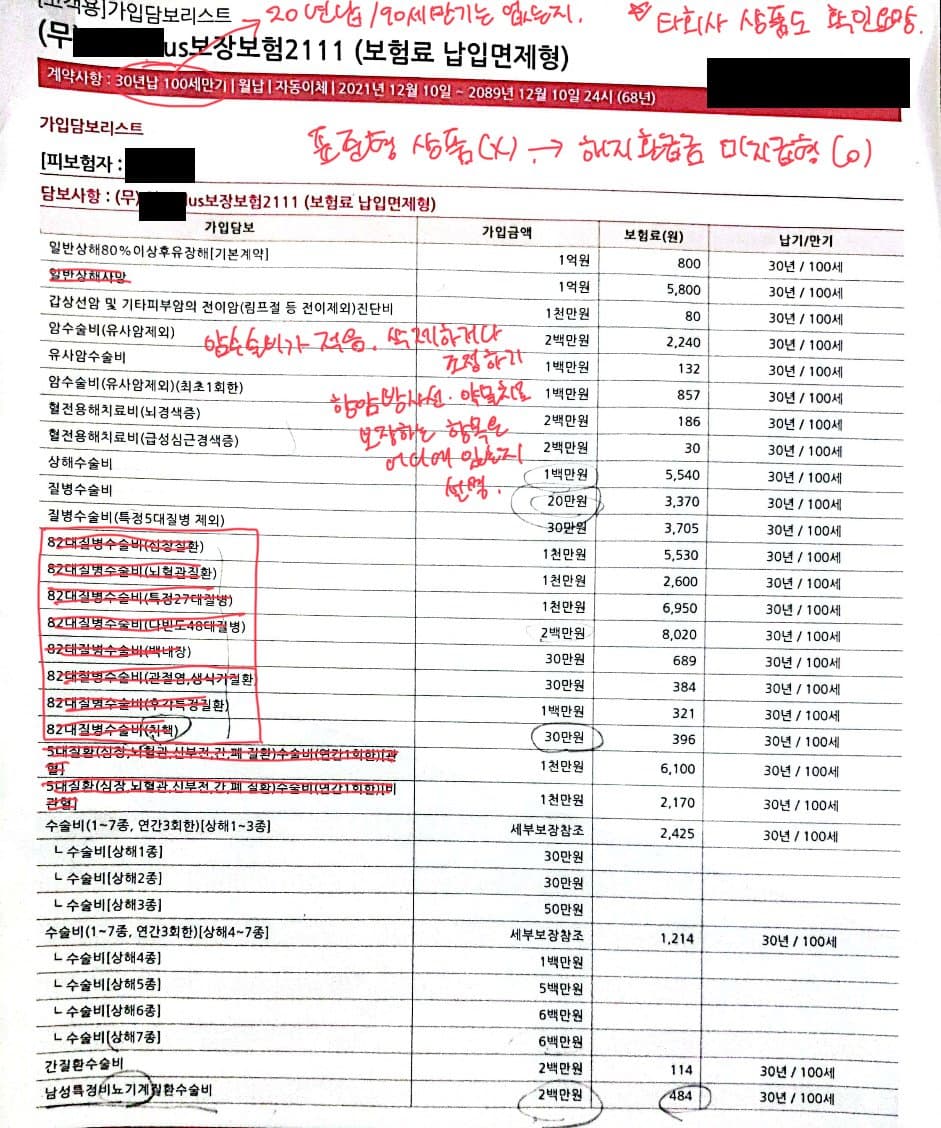 [고객용]가입담보리스트
20년납/90세만기는 없는지.
타회사 상품도 확인요망.
(무) us보장보험2111 (보험료 납입면제형)
계약사항 : 30년납 100세만기 | 월납 | 자동이체 | 2021년 12월 10일 ~ 2089년 12월 10일 24시 (68년)
가입담보리스트
표준형 상품(X) → 해지환급금 미지급형 (o)
[피보험자 :
담보사항 : (무) lus보장보험2111 (보험료 납입면제형)
가입담보 가입금액 보험료(원) 납기/만기
일반상해80%이상후유장해[기본계약] 1억원 800 30년 / 100세
일반상해사망 1억원 5,800 30년 / 100세
갑상선암 및 기타피부암의 전이암(림프절 등 전이제외)진단비 1천만원 80 30년 / 100세
암수술비(유사암제외) 2백만원 2,240 30년 / 100세
유사암수술비 1백만원 132 30년 / 100세
암수술비(유사암제외)(최초1회한) 1백만원 857 30년 / 100세
혈전용해치료비(뇌경색증) 2백만원 186 30년 / 100세
혈전용해치료비(급성심근경색증) 2백만원 30 30년 / 100세
암수술비가 적음. 삭제하거나
조정하기
항암방사선·약물치료
보장하는 항목은
어디에 있는지
설명.
상해수술비 1백만원 5,540 30년 / 100세
질병수술비 20만원 3,370 30년 / 100세
질병수술비(특정5대질병 제외) 30만원 3,705 30년 / 100세
82대질병수술비(심장질환) 1천만원 5,530 30년 / 100세
82대질병수술비(뇌혈관질환) 1천만원 2,600 30년 / 100세
82대질병수술비(특정27대질병) 1천만원 6,950 30년 / 100세
82대질병수술비(다빈도48대질병) 2백만원 8,020 30년 / 100세
82대질병수술비(백내장) 30만원 689 30년 / 100세
82대질병수술비(관절염,생식기질환) 30만원 384 30년 / 100세
82대질병수술비(후각특정질환) 1백만원 321 30년 / 100세
82대질병수술비(치핵) 30만원 396 30년 / 100세
5대질환(심장,뇌혈관,신부전,간,폐 질환)수술비(연간1회한)[관혈] 1천만원 6,100 30년 / 100세
5대질환(심장,뇌혈관,신부전,간,폐 질환)수술비(연간1회한)[비관혈] 1천만원 2,170 30년 / 100세
수술비(1~7종, 연간3회한)[상해1~3종] 세부보장참조 2,425 30년 / 100세
ㄴ수술비[상해1종] 30만원
ㄴ수술비[상해2종] 30만원
ㄴ수술비[상해3종] 50만원
수술비(1~7종, 연간3회한)[상해4~7종] 세부보장참조 1,214 30년 / 100세
ㄴ수술비[상해4종] 1백만원
ㄴ수술비[상해5종] 5백만원
ㄴ수술비[상해6종] 6백만원
ㄴ수술비[상해7종] 6백만원
간질환수술비 2백만원 114 30년 / 100세
남성특정비뇨기계질환수술비 2백만원 484 30년 / 100세